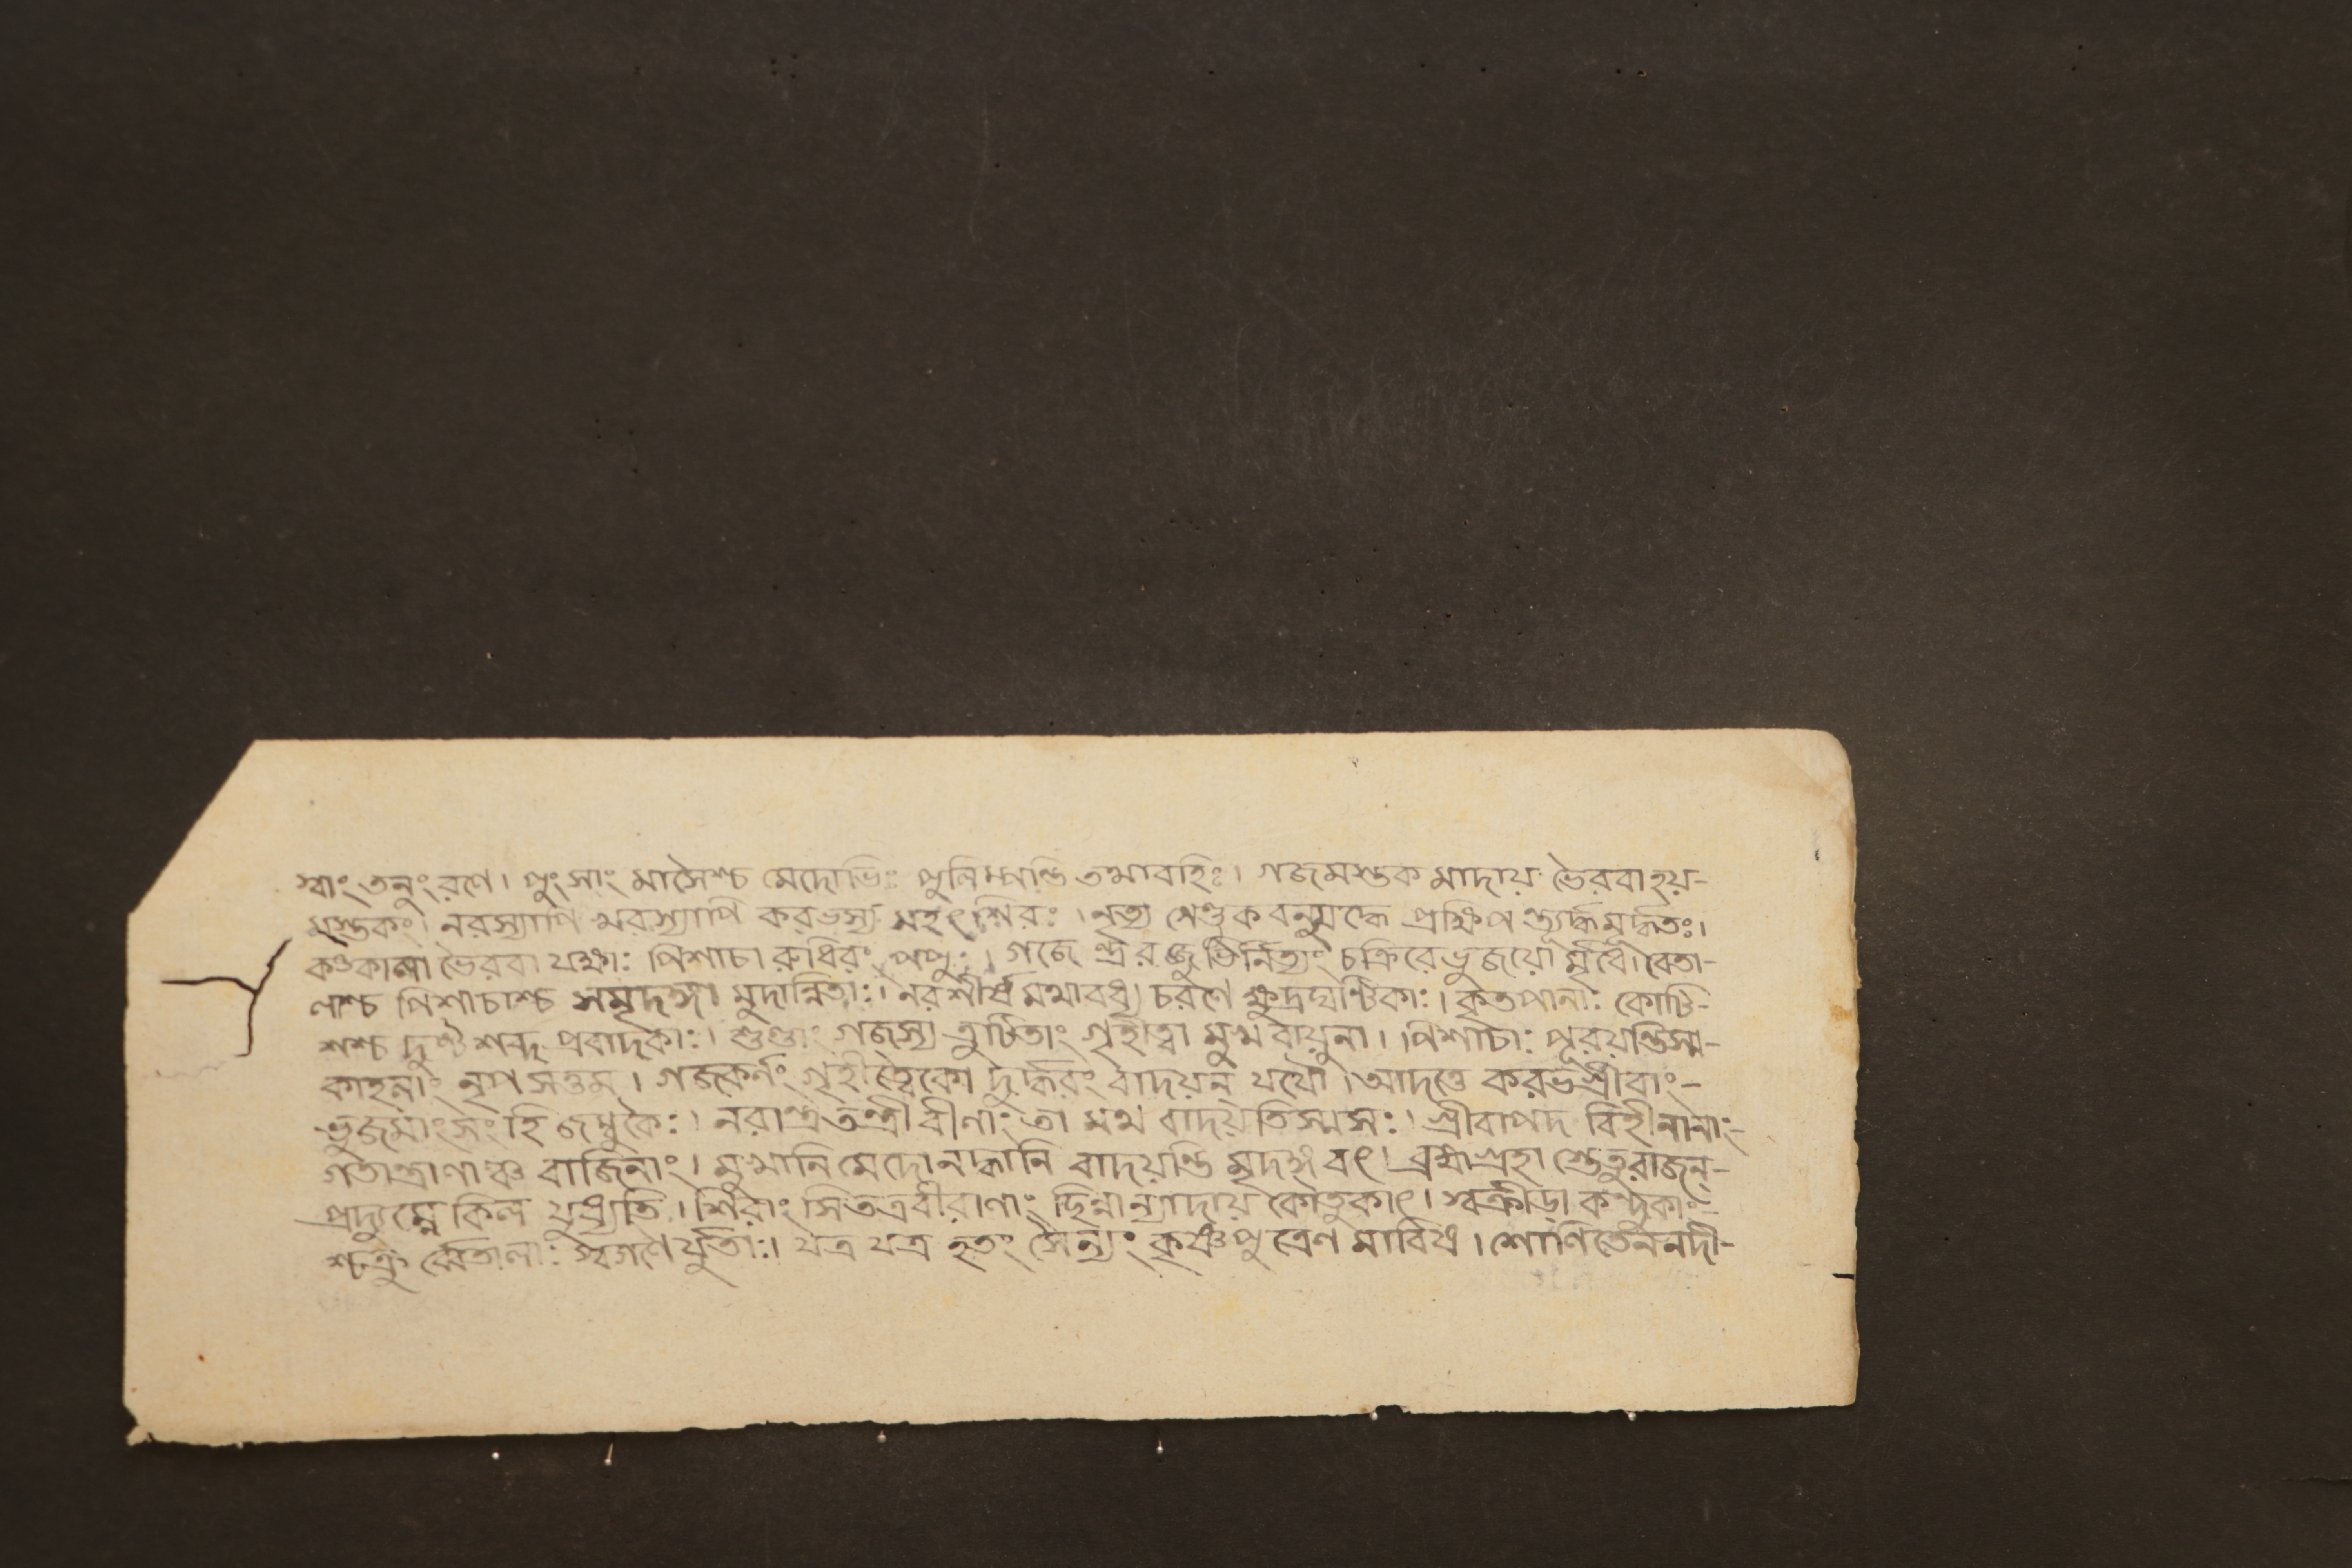 স্বাং তনুং রণে। পুংসাং মাংসৈশ্চ মেদোভিঃ পুনিম্পন্তি তথাবহিঃ। গজমস্তকমাদায় ভৈরবা হয়-
মস্তকং। নরস্যাপি খরস্যাপি করভস্য মহৎশিরঃ। নৃত্য গেণ্ডুকবন্মুর্দ্ধ্নে প্রক্ষিপন্ত্যূর্দ্ধমূর্দ্ধতঃ।
কঙ্কালা ভৈরবা যক্ষাঃ পিশাচা রুধিরং পপুঃ। গজেন্দ্ররজ্জুভির্নিত্যং চক্রিরে ভুজয়োর্মৃধে। বেতা-
লাশ্চ পিশাচাশ্চ সমৃদঙ্গা মুদান্নিতাঃ। নরশীর্ষমথাবধ্য চরণে ক্ষুদ্রঘণ্টিকাঃ। কৃতপানাঃ কোটি-
শশ্চ দুণ্ট শব্দ প্রবাদকাঃ। শুণ্ডাং গজস্য ত্রুটিতাং গৃহীত্বা মুখবায়ুনা। পিশাচাঃ পূরয়ন্তিস্ম-
কাহলাং নৃপসত্তম। গজকর্ণং গৃহীত্বৈকো দুর্দ্ধরং বাদয়ন্ যযৌ। আদত্তে করভগ্রীবাং-
ভুজমাংসং হি জম্বুকৈঃ। নরান্ত্রতন্ত্রী বীণাং তা মথ বাদয়তিস্ম সঃ। গ্রীবাপদ বিহীনানাং-
গতান্ত্রাণাঞ্চ বাজিনাং। মুখানি মেদোনদ্ধানি বাদয়ন্তি মৃদঙ্গবৎ। ব্রহ্মগ্রহা শ্তেতুরাজন্-
প্রদ্যুম্নে কিল যুধ্যতি। শিরাংসি তত্রবীরাণাং ছিন্নান্যাদায় কৌতুকাৎ। স্বক্রীড়া কন্দুকাং-
শ্চক্রু র্ব্বেতালাঃ স্বগণৈর্যুতাঃ। যত্র যত্র হতং সৈন্যং কৃষ্ণপুত্রেণ মাবিধ্র। শোণিতেন নদী-